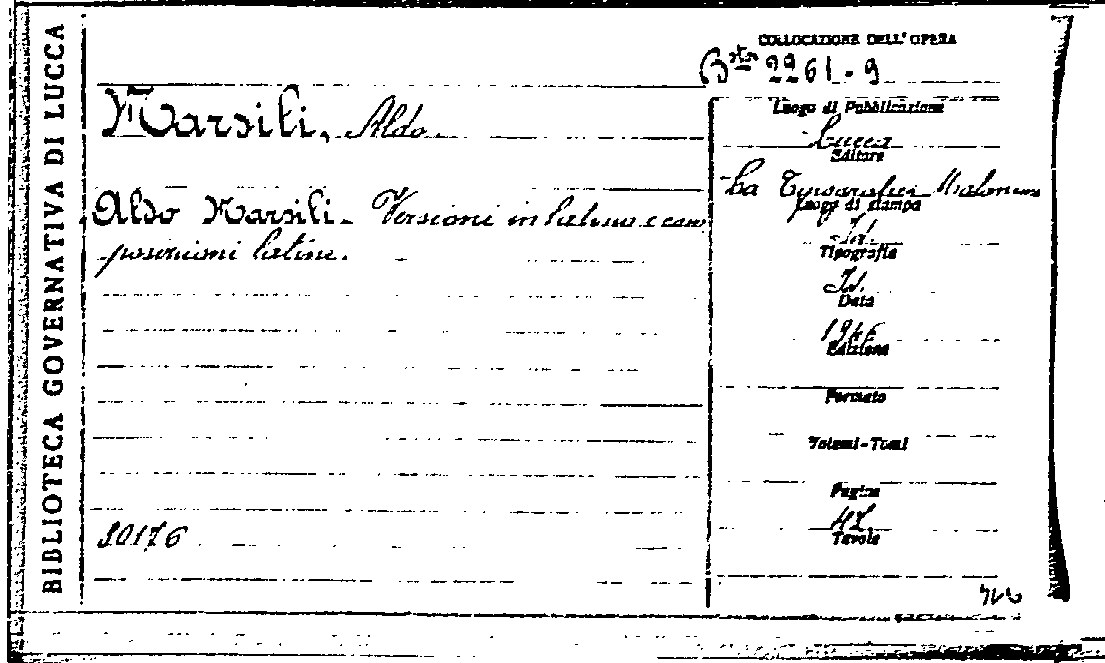 BIBLIOTECA GOVERNATIVA DI LUCCA
COLLOCAZIONE DELL' OPERA
Bsta 2261-9
Marsili, Aldo.
Luogo di Pubblicazione
Lucca
Editore
La
Aldo Marsili - Versioni in latino e com
posizioni latine.
Luogo di stampa
Id.
Tipografia
Id.
Data
1946
Edizione
Formato
Volumi-Tomi
Pagine
Tavole